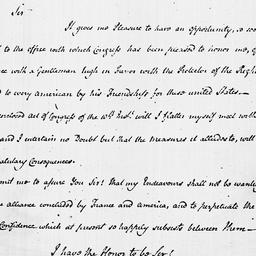 Sir
It gives me Pleasure to have an opportunity, so soo
to the office with which Congress has been pleased to honor me, of
ce with a Gentleman high in favor with the Protector of the Right
d to every American by his Friendship for these united States—
enclosed act of Congress of the 10th Inst. will I flatter myself meet with
and I entertain no Doubt but that the measures it alludes to, will
salutary Consequences
mit me to assure You Sir! that my Endeavours shall not be wanting
e alliance concluded by France and america, and to perpetuate the
Confidence which at present so happily subsists between them—
I have the Honor to be Sir!